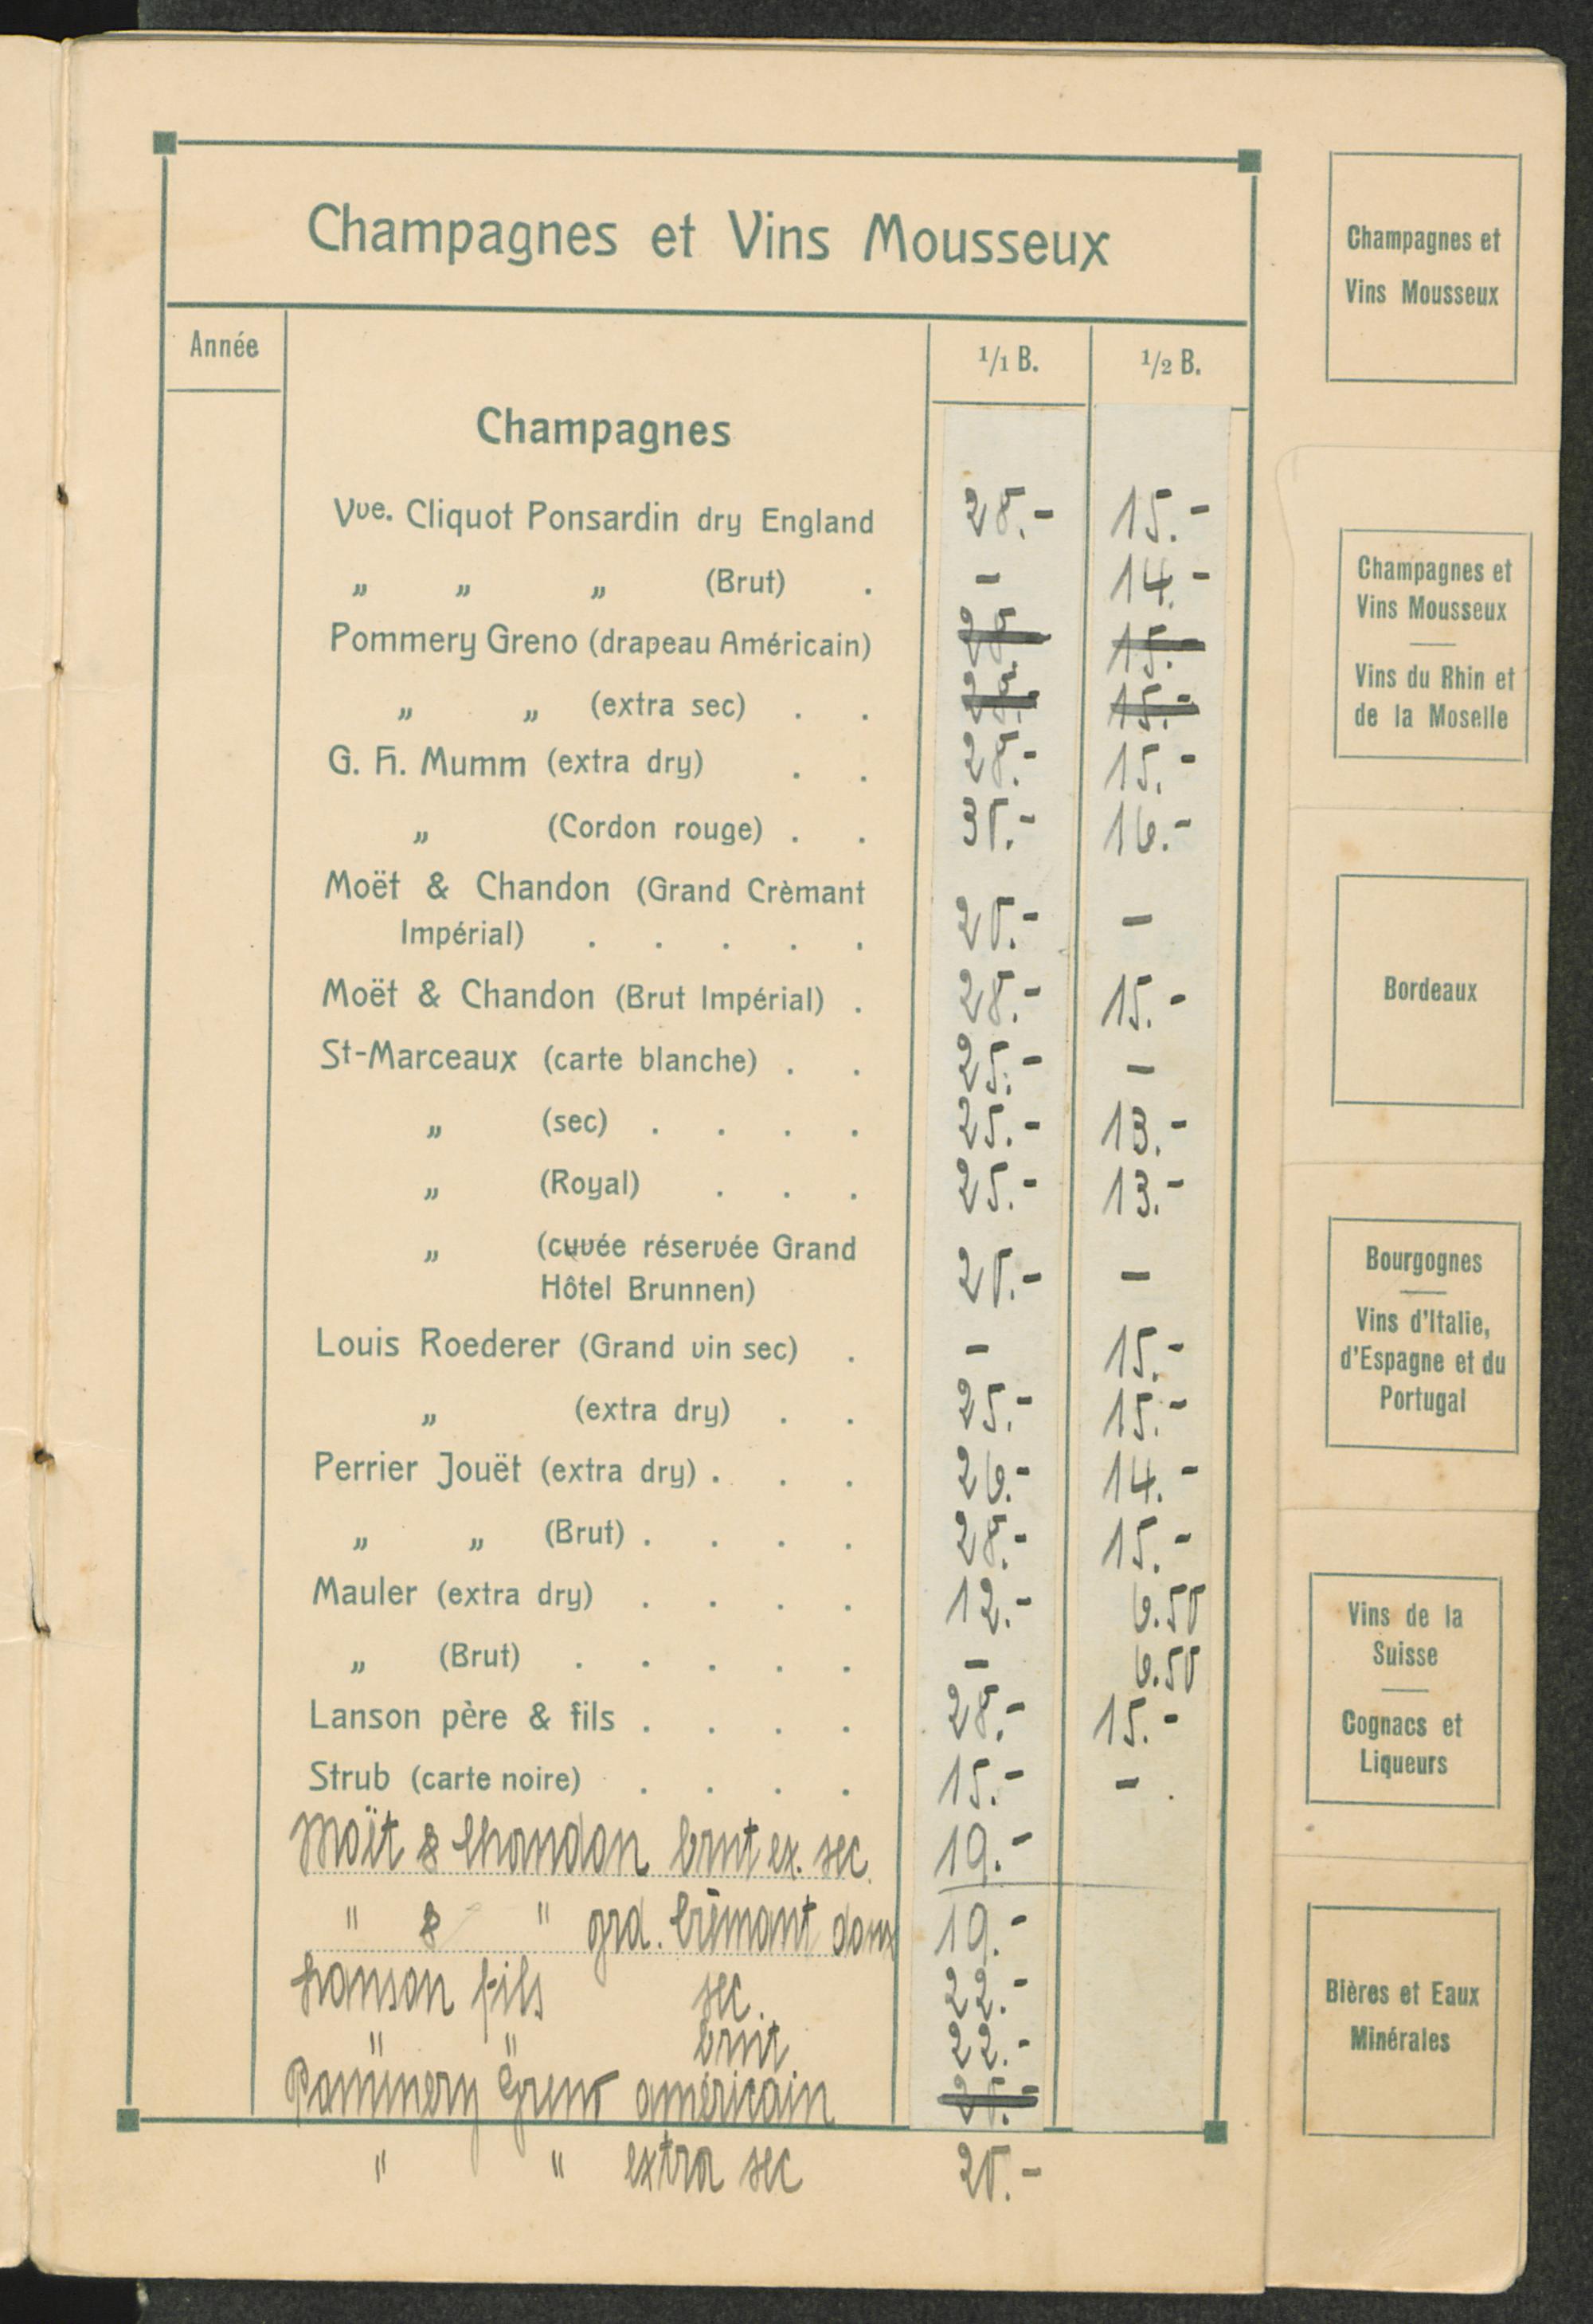 Champagnes et Vins Mousseux
Année 1/1 B. 1/2 B.
Champagnes
Vve. Cliquot Ponsardin dry England 28.- 15.-
„ „ „ (Brut) . - 14.-
Pommery Greno (drapeau Américain) 28.- 15.-
„ „ (extra sec) . . 28.- 15.-
G. H. Mumm (extra dry) . . 28.- 15.-
„ (Cordon rouge) . . 30.- 16.-
Moët & Chandon (Grand Crèmant
Impérial) . . . . . 20.- -
Moët & Chandon (Brut Impérial) . 28.- 15.-
St-Marceaux (carte blanche) . . 25.- -
„ (sec) . . . . 25.- 13.-
„ (Royal) . . . 25.- 13.-
„ (cuvée réservée Grand
Hôtel Brunnen) 20.- -
Louis Roederer (Grand vin sec) . - 15.-
„ (extra dry) . . 25.- 15.-
Perrier Jouët (extra dry) . . . 26.- 14.-
„ „ (Brut) . . . . 28.- 15.-
Mauler (extra dry) . . . . 12.- 6.50
„ (Brut) . . . . . - 6.50
Lanson père & fils . . . . 28.- 15.-
Strub (carte noire) . . . . 15.- -
Moët & Chandon brut ex. sec. 19.-
" & " grd. Crémant doux 19.-
Lanson fils sec. 22.-
" " brut 22.-
Pommery Greno américain
" " extra sec 20.-
Champagnes et
Vins Mousseux
Champagnes et
Vins Mousseux
Vins du Rhin et
de la Moselle
Bordeaux
Bourgognes
Vins d'Italie,
d'Espagne et du
Portugal
Vins de la
Suisse
Cognacs et
Liqueurs
Bières et Eaux
Minérales